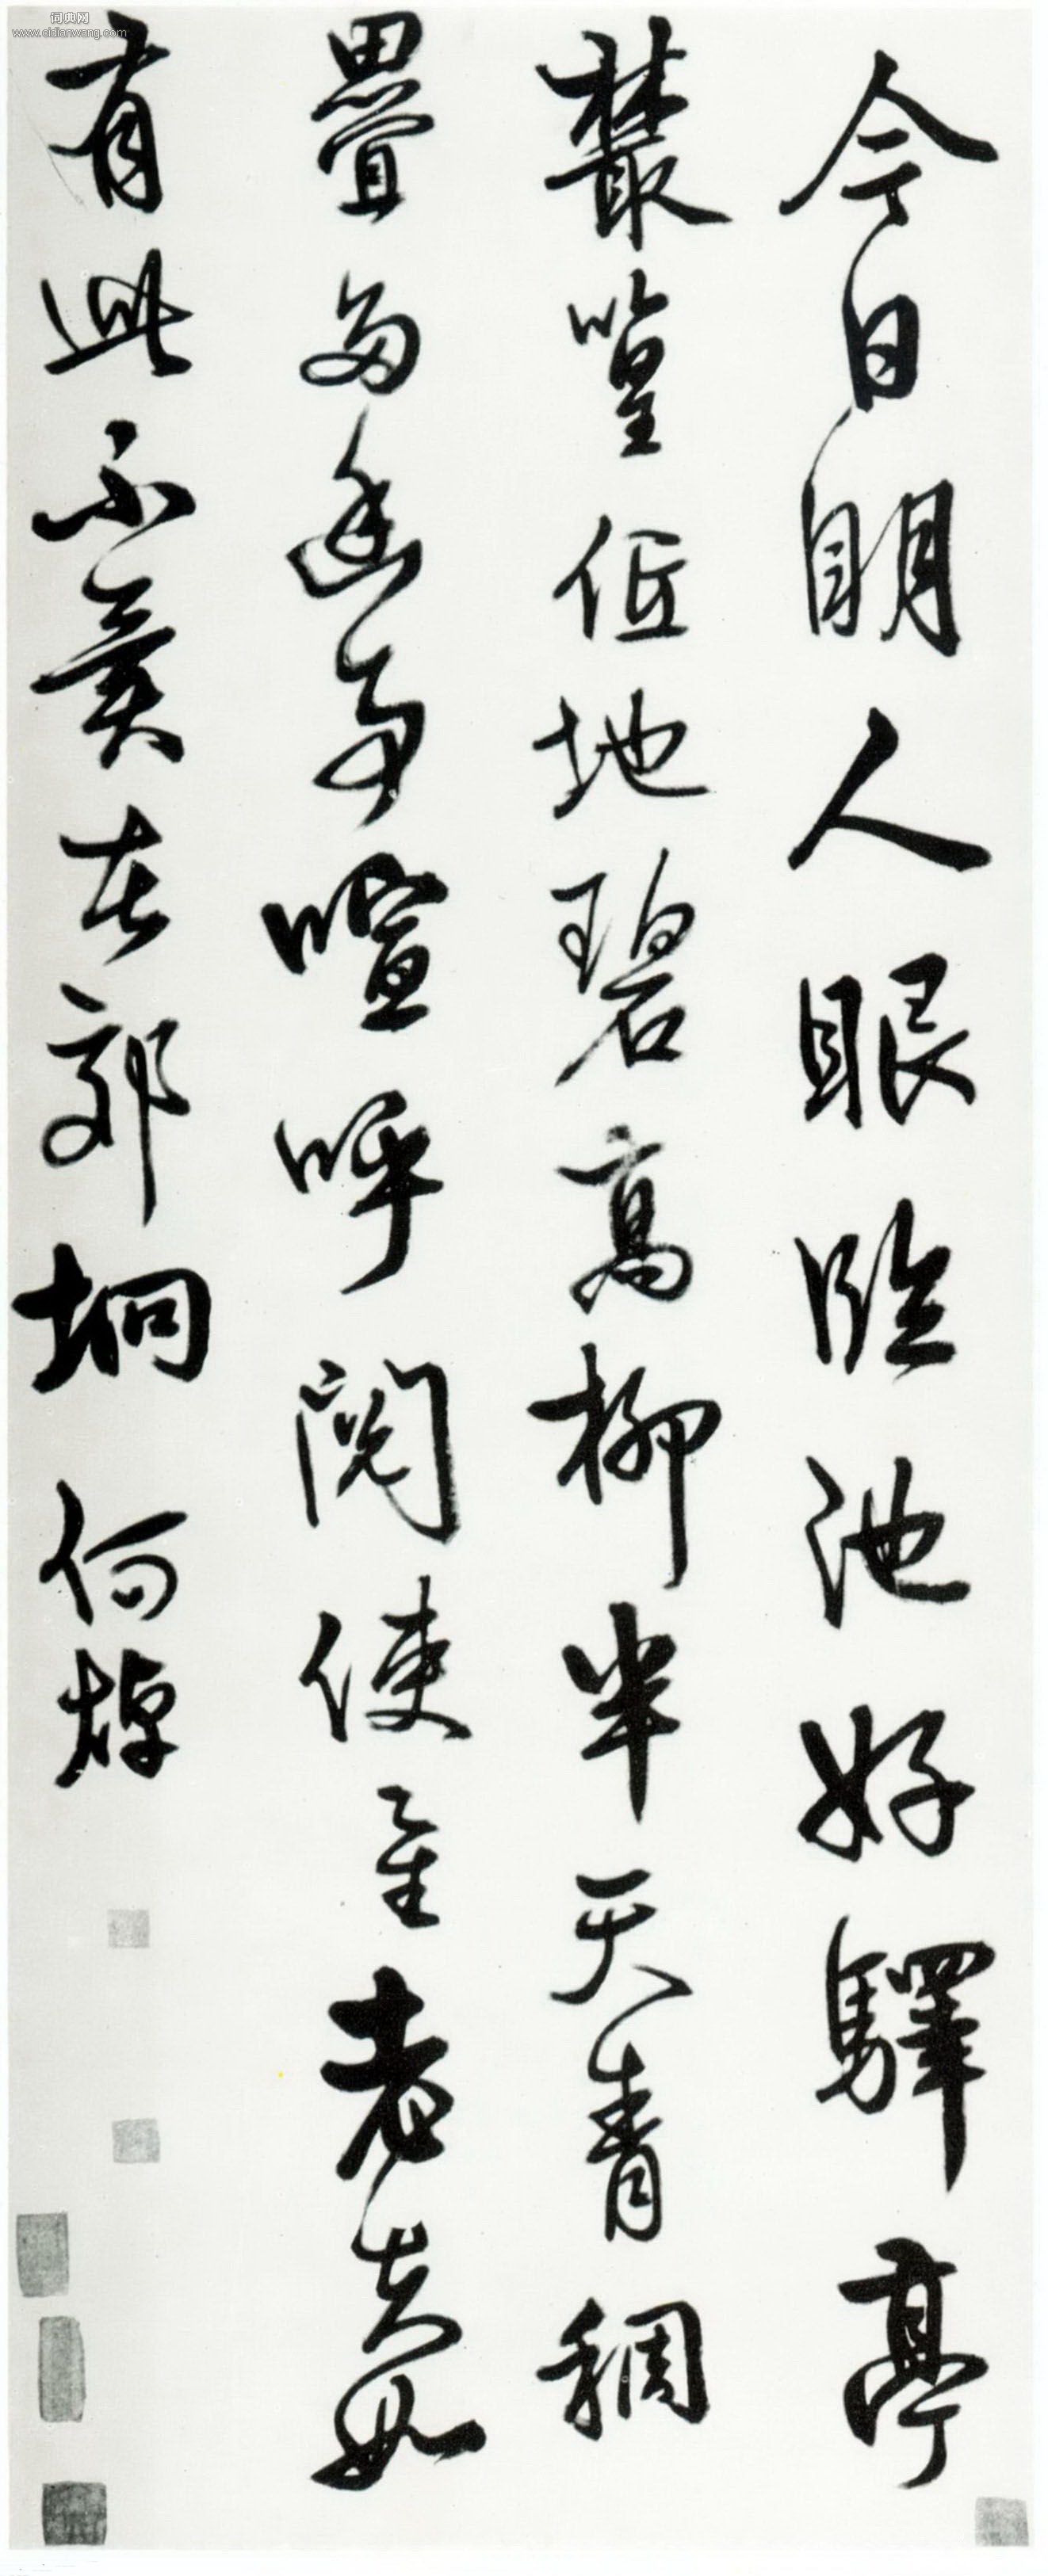 词典网
www.cidianwang.com
今日明人眼臨池好驛亭
叢篁低地碧高柳半天青稠
疊多幽事喧呼閱使星老夫如
有此不異在郊坰 何焯